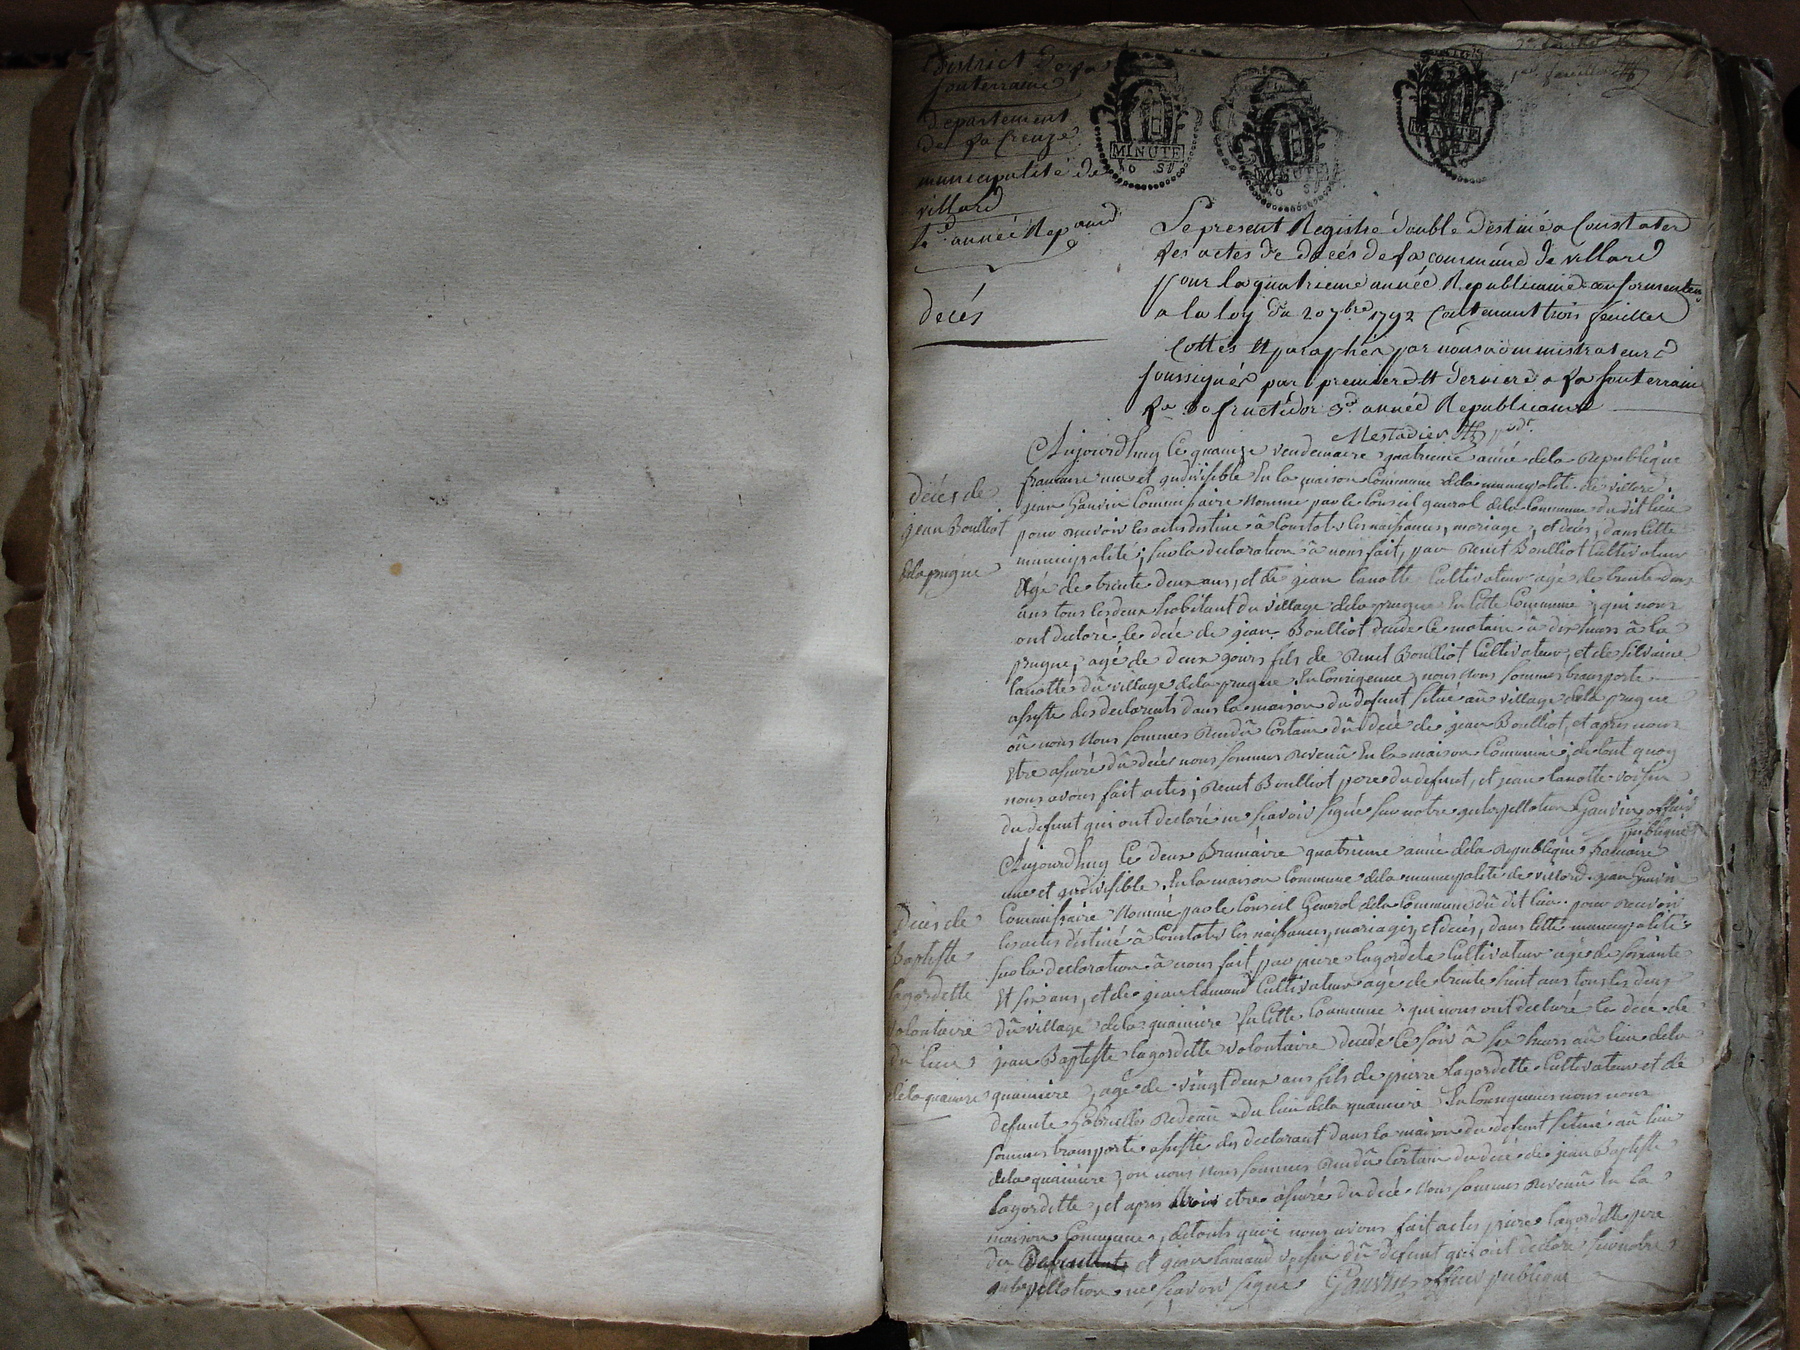 District de la
souterraine
departement
de la Creuze
municipalité de
villard
4e année Repaine
décés
MINUTE
MINUTE
MINUTE
1er feuillet
Le present Registre double destiné a Constater
les actes de décés de la commune de villard
pour la quatrieme année Republicaine conformement
a la loy du 20 7bre 1792 Contenant trois feuilles
Cottés et paraphés par nous administrateurs
soussignés par premiere et derniere a la souterraine
le fructidor 3e année Republicaine
Mestadier pdt
décés de
jean Boulliot
delaprugne
Aujourdhuy le quainze vendemaire quatrieme année dela Republique
francaise une et indivisible En la maison Commune dela municipalité de villard
jean Gauvin Commissaire Nommé par le Conseil general dela Commune du dit lieu
pour recevoir les actes destiné â Constater les naissances, mariage, et décés, dans cette
municipalité, sur la declaration â nous fait, par Benuit Boulliot Cultivateur
Agé de trente deux ans, et de jean lanotte Cultivateur agé de trente deux
ans tous les deux habitant du village dela prugne En Cette Commune, qui nous
ont declaré le décé de jean Boulliot decidé Ce matain â dix heurs â la
prugne, agé de deux jours fils de Benuit Boulliot Cultivateur, et de silvaine
lanotte dû village dela prugne En Consequence, nous Nous sommes transporté
assisté des declarents dans la maison du defunt situé aû village dela prugne
oû nous Nous sommes Rendû Certain dû décé de jean Boulliot, et aprés nous
Etre assuré dû décés nous sommes Revenû En la maison Commune, de tout quoy
nous avons fait actes, Benuit Boulliot pere du defunt, et jean lanotte voisin
du defunt qui ont declaré ne scavoir signé sur notre interpellation Gauvin officier
publique
Décés de
Baptiste
lagordette
volontaire
du lieu
dela quainiere
Aujourdhuy le deux Brumaire quatrieme année dela Republique francaise
une et indivisible, En la maison Commune dela municipalité de villard jean Gauvin
Commissaire Nommé par le Conseil General dela Commune dû dit lieu pour Recevoir
les actes destiné â Constater les naissances, mariages, et décés, dans Cette municipalité
sur la declaration â nous fait par piere lagordete Cultivateur agé de soixante
Et six ans, et de jean lamaud Cultivateur agé de trente huit ans tous les deux
dû village dela quainiere En Cette Commune, qui nous ont declaré le décé de
jean Baptiste lagordette volontaire decidé Ce soir â six heurs aû lieu dela
quainiere, agé de vingt deux ans fils de pierre lagordette Cultivateur et de
defunte Gabrielle du lieu dela quainiere En Consequence nous nous
sommes transporté assisté des declarant dans la maison du defunt situé aû lieu
dela quainiere, ou nous Nous sommes Rendû Certain du décé de jean Baptiste
lagordette, et apres etre assuré du décé Nous sommes Revenû En la
maison Commune, de touts quoi nous avons fait actes, piere lagordette pere
du et jean lamaud voisin dû defunt qui ont declaré sur notre
interpellation ne scavoir signé Gauvin officier publique